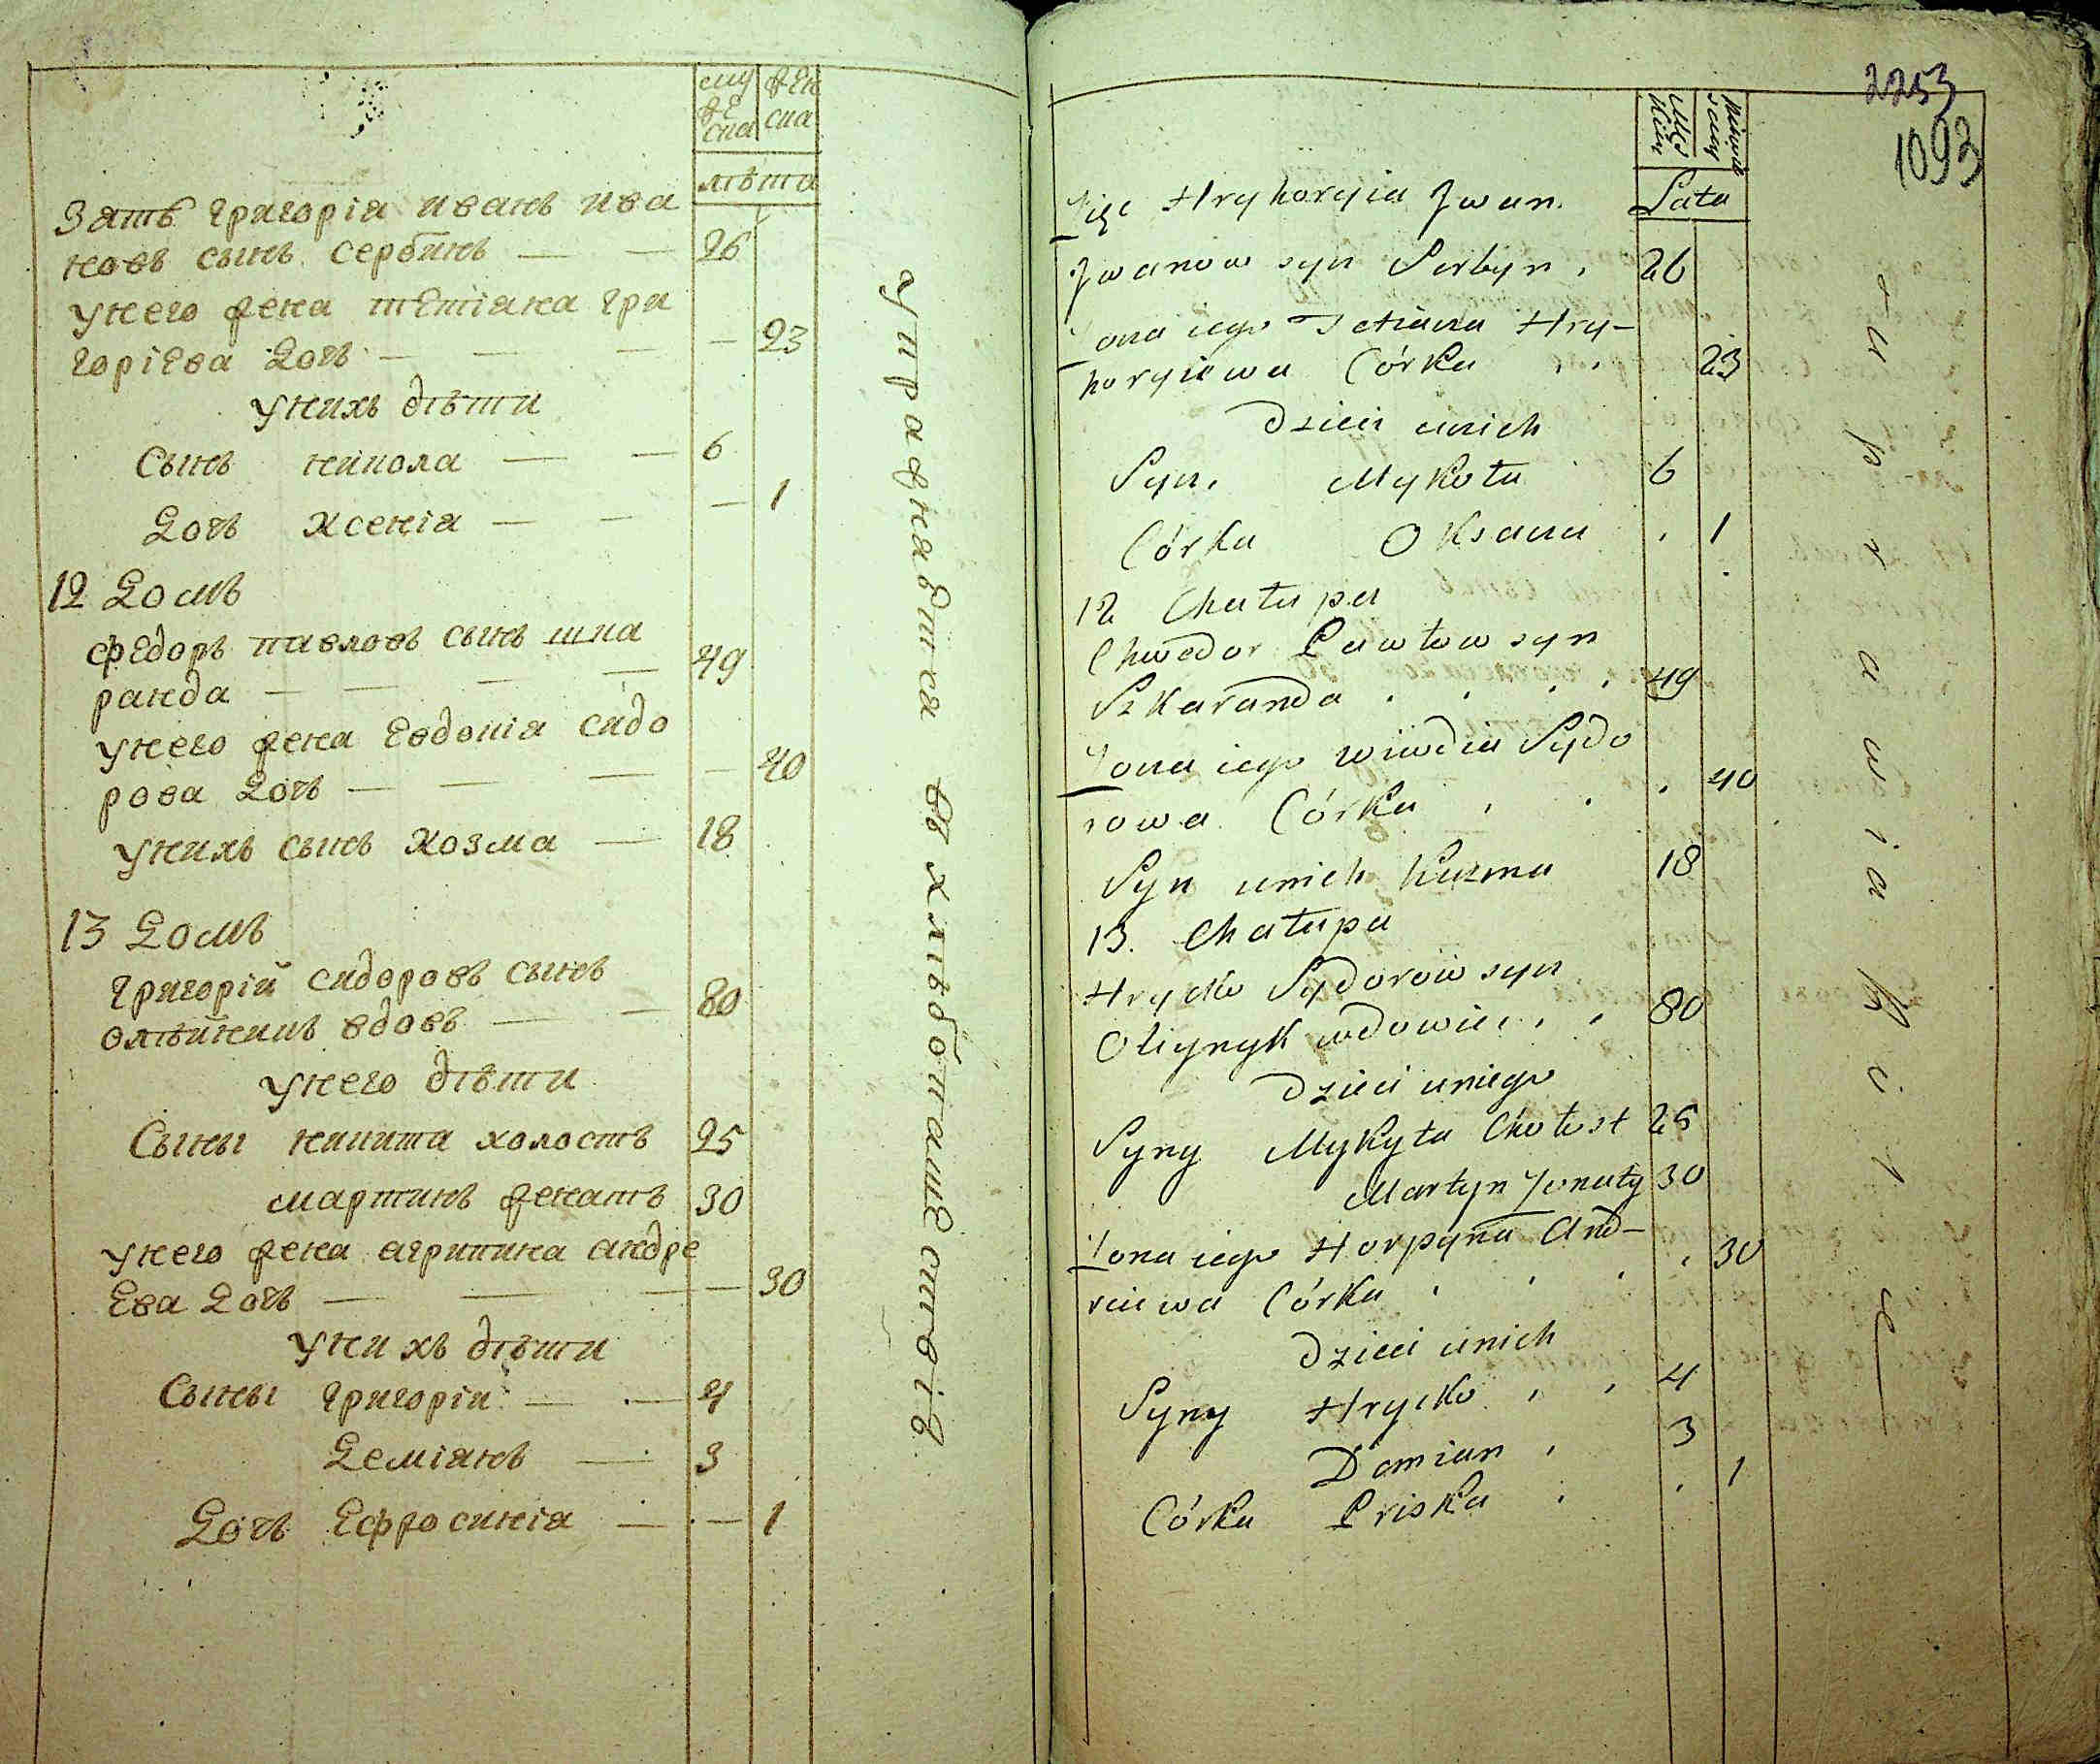 муже
ска
жен
ска
лѣта
Зять григорія иванъ ива
новъ сынъ сербинъ — — 26
унего жена тетіана гри
горіева дочь — — — — 23
унихъ дѣти
Сынъ никола — — 6
Дочь ксенія — — — 1
12 Домъ
федоръ павловъ сынъ шка
ранда — — — — 49
унего жена евдокія сидо
рова дочь — — — — 40
унихъ сынъ козма — 18
13 Домъ
григорій сидоровъ сынъ
олѣйникъ вдовъ — — 80
унего дѣти
Сыны никита холостъ 25
мартинъ женатъ 30
унего жена агрипина андре
ева дочь — — — — 30
унихъ дѣти
Сыны григорій — — 4
Деміянъ — 3
Дочь Ефросинія — — 1
упражняется въ хлѣбопашествіѣ
2253
1093
Męs
kiey
Lata
Zięć Hryhoryia Jwan
Jwanow syn Serbyn 26
Żona iego Tetiana Hry-
horyiewa Córka 23
Dzieci unich
Syn Mykoła 6
Córka Oksana 1
12 Chałupa
Chwedor Pawłow syn
Szkaranda 49
Żona iego Wiwdia Sydo
rowa Córka 40
Syn unich Kuzma 18
13. Chałupa
Hrycko Sydorów syn
Oliynyk wdowiec 80
Dzieci uniego
Syny Mykyta Chołost 25
Martyn Żonaty 30
Żona iego Horpyna And-
reiewa Córka 30
Dzieci unich
Syny Hrycko 4
Domian 3
Córka Priska 1